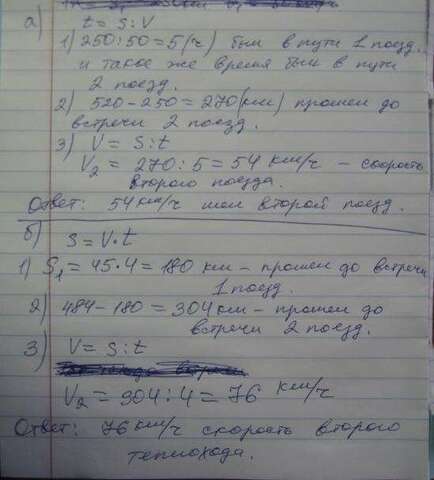 а) t = S : V
1) 250 : 50 = 5 (ч) был в пути 1 поезд.
и такое же время был в пути
2 поезд.
2) 520 - 250 = 270 (км) прошел до
встречи 2 поезд.
3) V = S : t
V₂ = 270 : 5 = 54 км/ч - скорость
второго поезда.
Ответ: 54 км/ч шел второй поезд.
б) S = V · t
1) S₁ = 45 · 4 = 180 км - прошел до встречи
1 поезд.
2) 484 - 180 = 304 км - прошел до
встречи 2 поезд.
3) V = S : t
V₂ = 304 : 4 = 76 км/ч
Ответ: 76 км/ч скорость второго
теплохода.